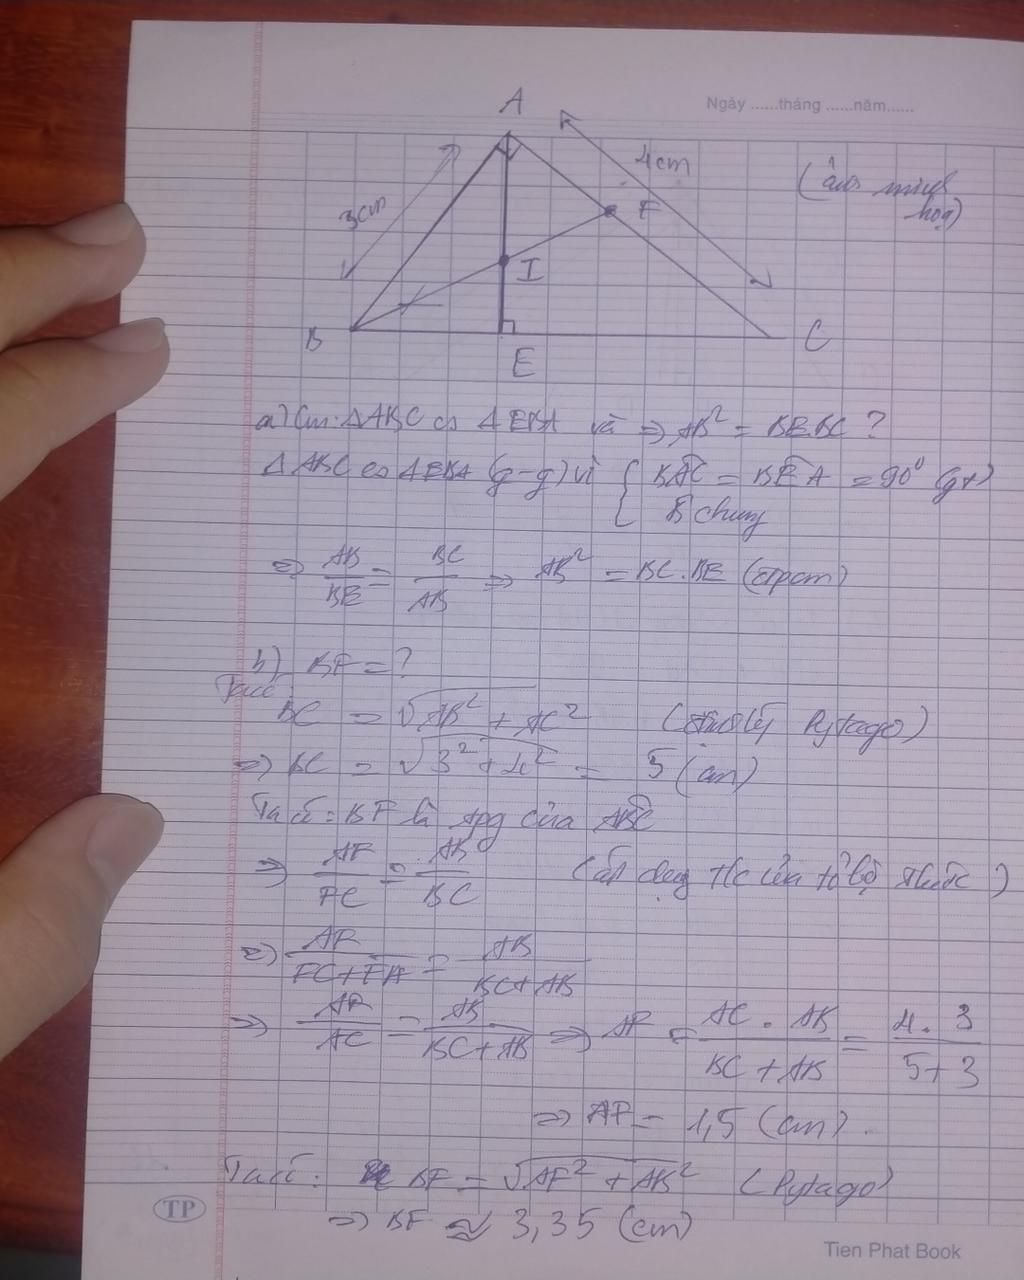 Ngày ......tháng ......năm......
A
4cm
(ảnh minh
hoạ)
3cm
F
I
B
E
C
a) Cm: ΔABC ∽ ΔEBA và ⇒ AB² = BE.BC ?
ΔABC ∽ ΔEBA (g-g) vì { BÂC = BÊA = 90° (gt)
B̂ chung
⇒ AB/BE = BC/AB ⇒ AB² = BC.BE (đpcm)
b) BF = ?
Ta có:
BC = √(AB² + AC²) (định lý Pytago)
⇒ BC = √(3² + 4²) = 5 (cm)
Ta có: BF là tpg của ABC
⇒ AF/FC = AB/BC (áp dụng t/c của tỉ lệ thức)
⇒ AF/(FC+FA) = AB/(BC+AB)
⇒ AF/AC = AB/(BC+AB) ⇒ AF = (AC . AB)/(BC + AB) = (4 . 3)/(5+3)
⇒ AF = 1,5 (cm).
Ta có: BF = √(AF² + AB²) (Pytago)
⇒ BF ≈ 3,35 (cm)
TP
Tien Phat Book